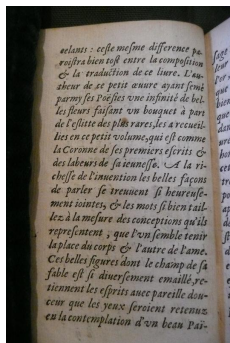 aelants : ceste mesme difference pa-
roistra bien tost entre la composition
& la traduction de ce liure. L'au-
theur de ce petit œuure ayant semé
parmy ses Poësies vne infinité de bel-
les fleurs faisant vn bouquet à part
de l'eslitte des plus rares, les a recueil-
lies en ce petit volume, qui est comme
la Coronne de ses premiers escrits &
des labeurs de sa ieunesse. A la ri-
chesse de l'inuention les belles façons
de parler se treuuent si heureuse-
ment iointes, & les mots si bien tail-
lez à la mesure des conceptions qu'ils
representent, que l'vn semble tenir
la place du corps & l'autre de l'ame.
Ces belles figures dont le champ de sa
fable est si diuersement emaillé, re-
tiennent les esprits auec pareille dou-
ceur que les yeux seroient retenuz
en la contemplation d'vn beau Paï-